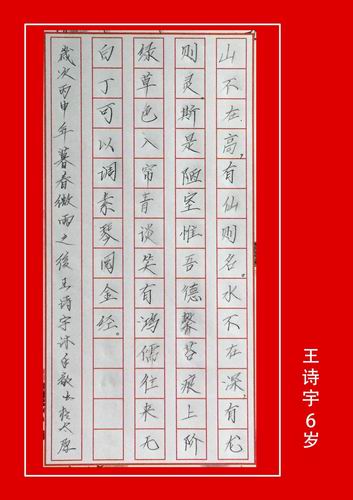 山不在高,有仙则名。水不在深,有龙
则灵.斯是陋室惟吾德馨苔痕上阶
绿草色入帘青谈笑有鸿儒往来无
白丁可以调素琴阅金经。
歲次丙申年暮春微雨之後王诗宇沐手敬书於太原
王诗宇 6岁